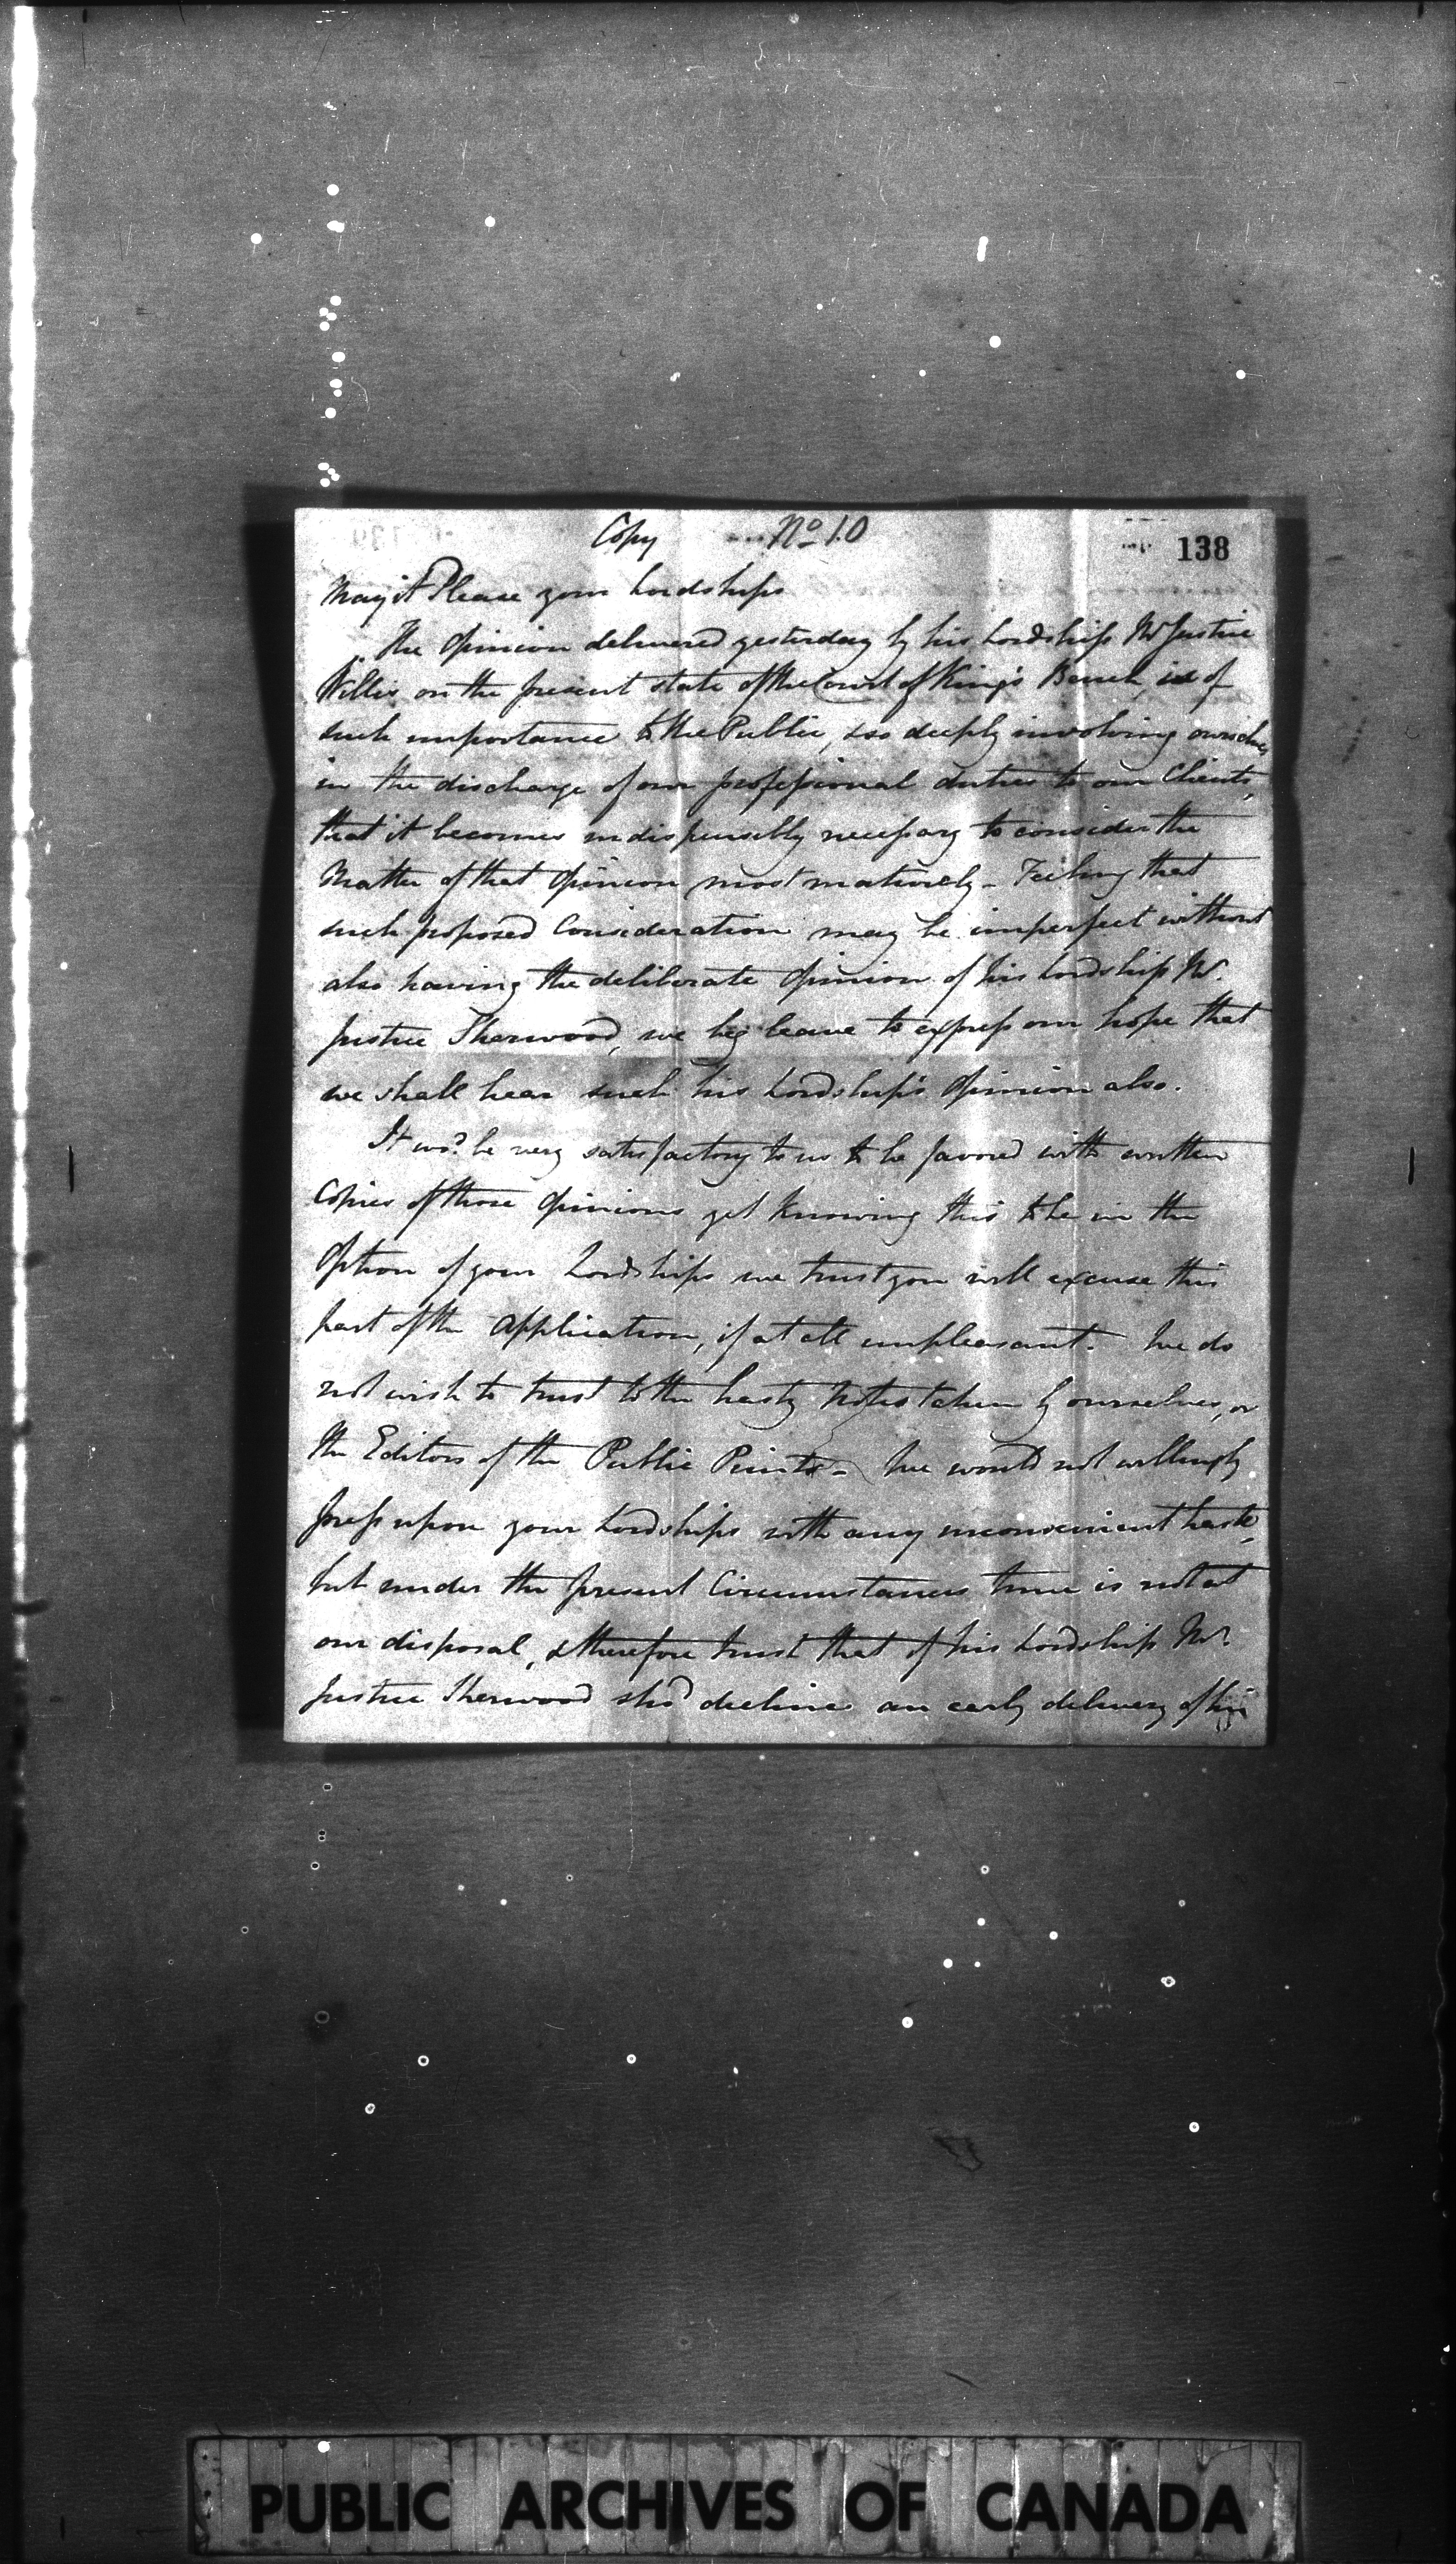 Copy No 10
138
May it Please your Lordships
The Opinion delivered yesterday by his Lordship Mr Justice
Willis on the present state of the Court of King's Bench, is of
such importance to the Public, & so deeply involving ourselves
in the discharge of our professional duties to our Clients,
that it becomes indispensably necessary to consider the
Matter of that Opinion most maturely - Feeling that
such proposed Consideration may be imperfect without
also having the deliberate Opinion of his Lordship Mr.
Justice Sherwood, we beg leave to express our hope that
we shall hear such his Lordship's Opinion also.
It wod. be very satisfactory to us to be favored with written
Copies of those Opinions yet knowing this to be in the
Option of your Lordships we trust you will excuse this
part of the Application, if at all unpleasant. We do
not wish to trust to the hasty Notes taken by ourselves, or
the Editors of the Public Prints - We would not willingly
press upon your Lordships with any inconvenient haste,
but under the present Circumstances time is not at
our disposal, & therefore trust that if his Lordship Mr.
Justice Sherwood shod decline an early delivery of his
PUBLIC ARCHIVES OF CANADA